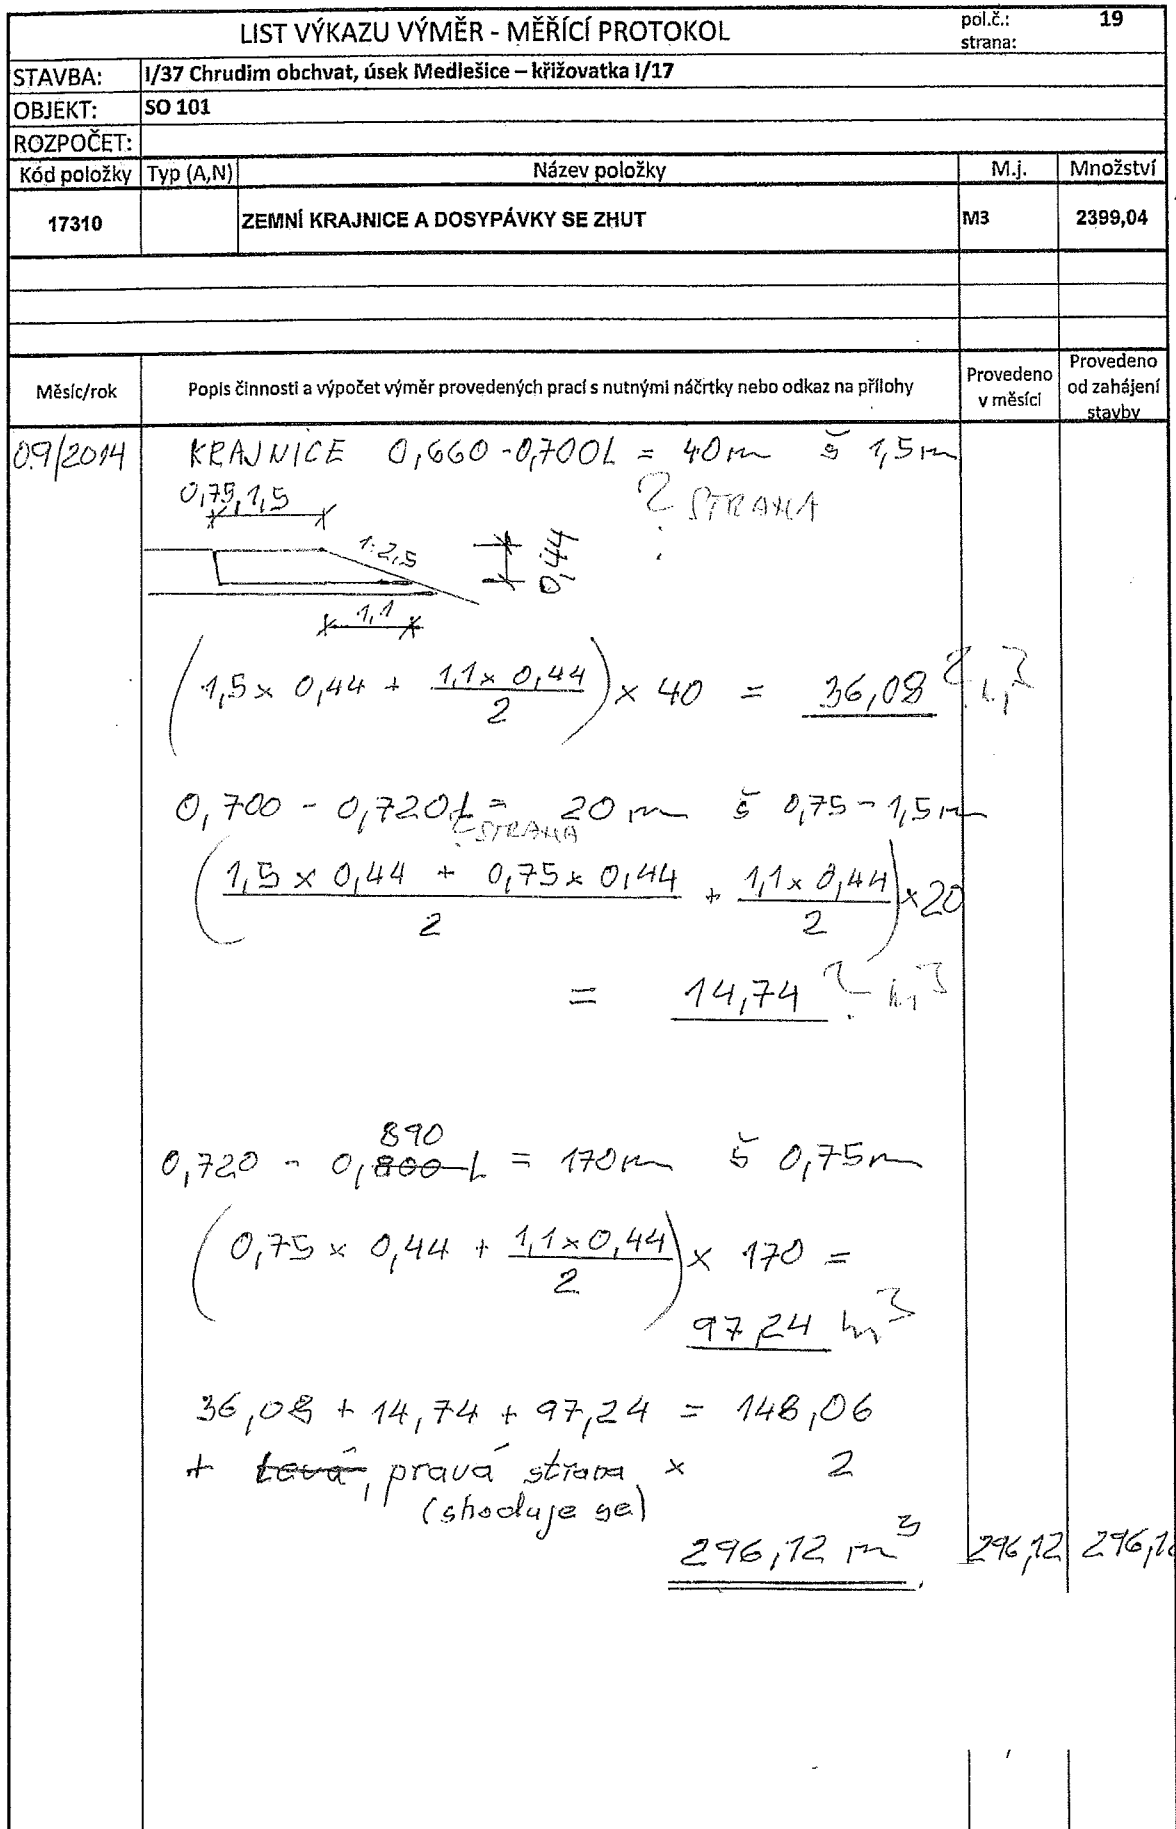 LIST VÝKAZU VÝMĚR - MĚŘÍCÍ PROTOKOL
pol.č.: 19
strana:
STAVBA: I/37 Chrudim obchvat, úsek Medlešice – křižovatka I/17
OBJEKT: SO 101
ROZPOČET:
Kód položky Typ (A,N) Název položky M.j. Množství
17310 ZEMNÍ KRAJNICE A DOSYPÁVKY SE ZHUT M3 2399,04
Měsíc/rok Popis činnosti a výpočet výměr provedených prací s nutnými náčrtky nebo odkaz na přílohy Provedeno v měsíci Provedeno od zahájení stavby
09/2014 KRAJNICE 0,660-0,700L = 40m š 1,5m
? STRANA
0,75, 1,5
1:2,5
0,44
1,1
(1,5 x 0,44 + 1,1 x 0,44 / 2) x 40 = 36,08 ? m3
0,700 - 0,720L = 20 m š 0,75 - 1,5m
? STRANA
(1,5 x 0,44 + 0,75 x 0,44 / 2 + 1,1 x 0,44 / 2) x 20
= 14,74 ? m3
890
0,720 - 0,800 L = 170m š 0,75m
(0,75 x 0,44 + 1,1 x 0,44 / 2) x 170 =
97,24 m3
36,08 + 14,74 + 97,24 = 148,06
+ Levá, pravá strana x 2
(shoduje se)
296,12 m3 296,12 296,12